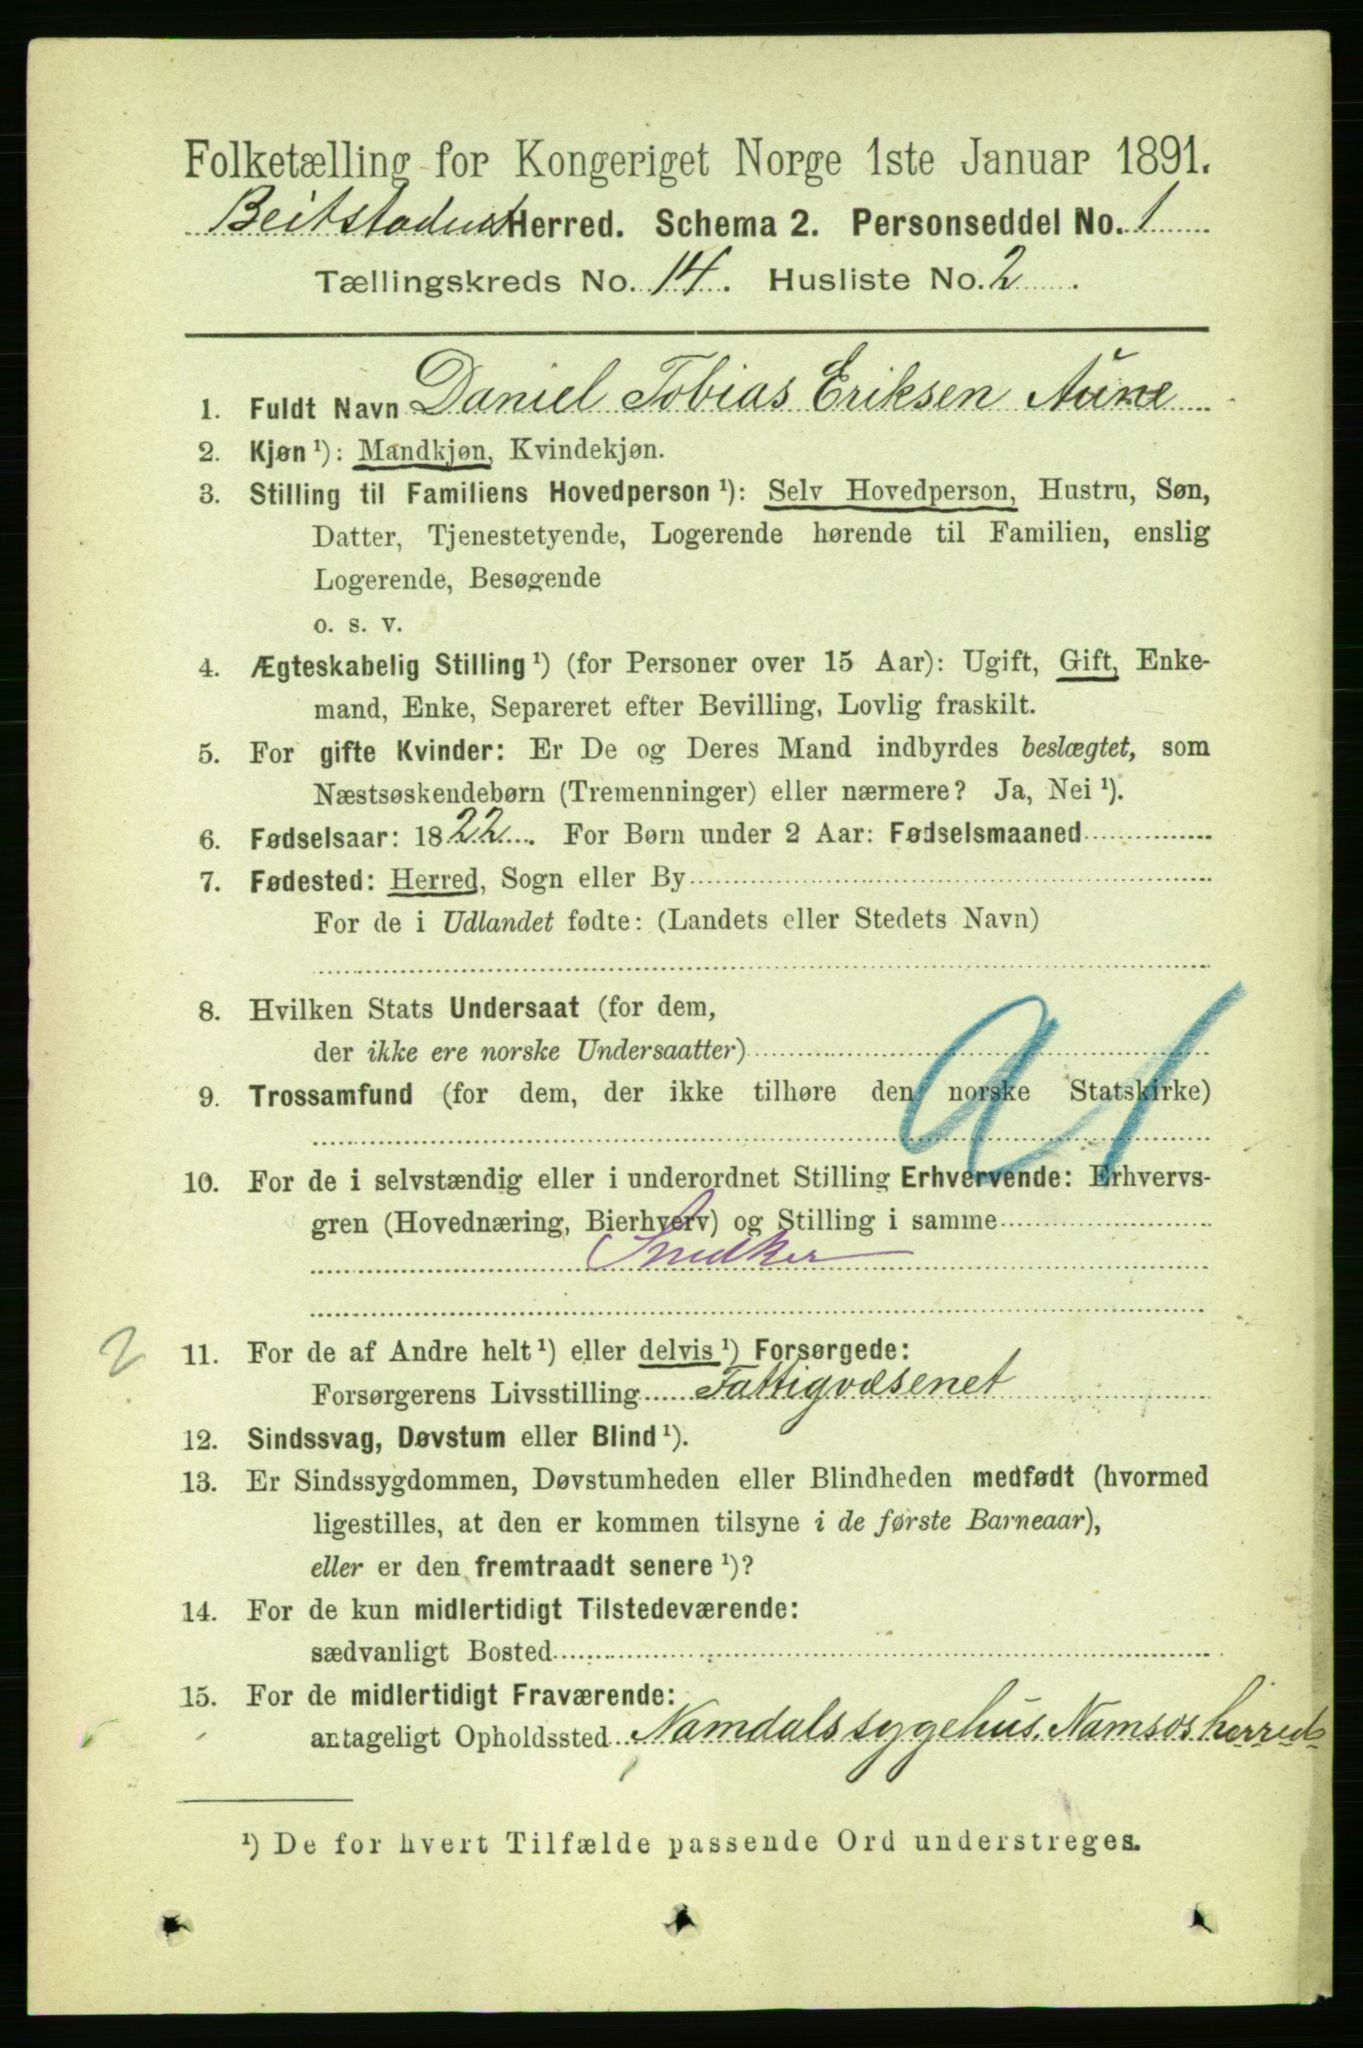 Folketælling for Kongeriget Norge 1ste Januar 1891.
Beitstadens Herred. Schema 2. Personseddel No. 1
Tællingskreds No. 14. Husliste No. 2.
1. Fuldt Navn Daniel Tobias Eriksen Aune
2. Kjøn ¹): Mandkjøn, Kvindekjøn.
3. Stilling til Familiens Hovedperson ¹): Selv Hovedperson, Hustru, Søn,
Datter, Tjenestetyende, Logerende hørende til Familien, enslig
Logerende, Besøgende
o. s. v.
4. Ægteskabelig Stilling ¹) (for Personer over 15 Aar): Ugift, Gift, Enke-
mand, Enke, Separeret efter Bevilling, Lovlig fraskilt.
5. For gifte Kvinder: Er De og Deres Mand indbyrdes beslægtet, som
Næstsøskendebørn (Tremenninger) eller nærmere? Ja, Nei ¹).
6. Fødselsaar: 1822. For Børn under 2 Aar: Fødselsmaaned
7. Fødested: Herred, Sogn eller By
For de i Udlandet fødte: (Landets eller Stedets Navn)
8. Hvilken Stats Undersaat (for dem,
der ikke ere norske Undersaatter)
9. Trossamfund (for dem, der ikke tilhøre den norske Statskirke)
10. For de i selvstændig eller i underordnet Stilling Erhvervende: Erhvervs-
gren (Hovednæring, Bierhverv) og Stilling i samme
Snedker
2 11. For de af Andre helt ¹) eller delvis ¹) Forsørgede:
Forsørgerens Livsstilling Fattigvæsenet
12. Sindssvag, Døvstum eller Blind ¹).
13. Er Sindssygdommen, Døvstumheden eller Blindheden medfødt (hvormed
ligestilles, at den er kommen tilsyne i de første Barneaar),
eller er den fremtraadt senere ¹)?
14. For de kun midlertidigt Tilstedeværende:
sædvanligt Bosted
15. For de midlertidigt Fraværende:
antageligt Opholdssted Namdals sygehus, Namsos herred
¹) De for hvert Tilfælde passende Ord understreges.